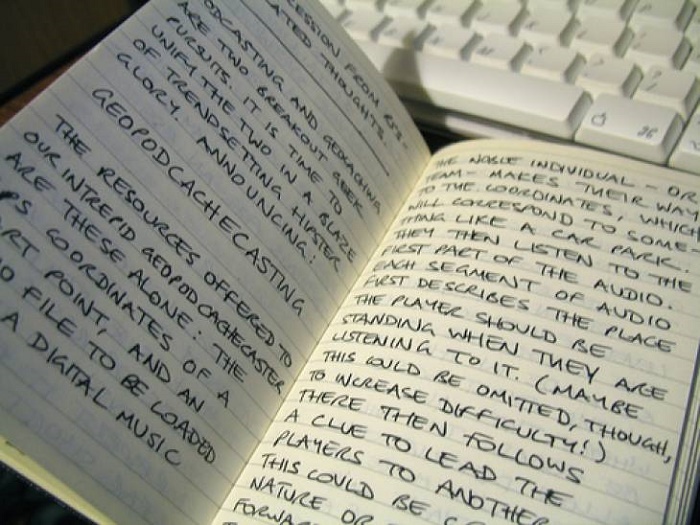 CESSION FROM
ATED THOUGHTS.
ODCASTING AND GEOCACHING
ARE TWO BREAKOUT GEEK
PURSUITS. IT IS TIME TO
UNIFY THE TWO IN A BLAZE
OF TRENDSETTING HIPSTER
GLORY. ANNOUNCING:
GEOPODCACHECASTING
THE RESOURCES OFFERED TO
OUR INTREPID GEOPODCACHECASTER
ARE THESE ALONE: THE
PS COORDINATES OF A
RT POINT, AND AN
IO FILE TO BE LOADED
A DIGITAL MUSIC
THE NOBLE INDIVIDUAL - OR
TEAM - MAKES THEIR WAY
TO THE COORDINATES, WHICH
WILL CORRESPOND TO SOME-
THING LIKE A CAR PARK.
THEY THEN LISTEN TO THE
FIRST PART OF THE AUDIO.
EACH SEGMENT OF AUDIO
FIRST DESCRIBES THE PLACE
THE PLAYER SHOULD BE
STANDING WHEN THEY ARE
LISTENING TO IT. (MAYBE
THIS COULD BE OMITTED, THOUGH,
TO INCREASE DIFFICULTY!)
THERE THEN FOLLOWS
A CLUE TO LEAD THE
PLAYERS TO ANOTHER
THIS COULD BE
NATURE OR
FORWAR